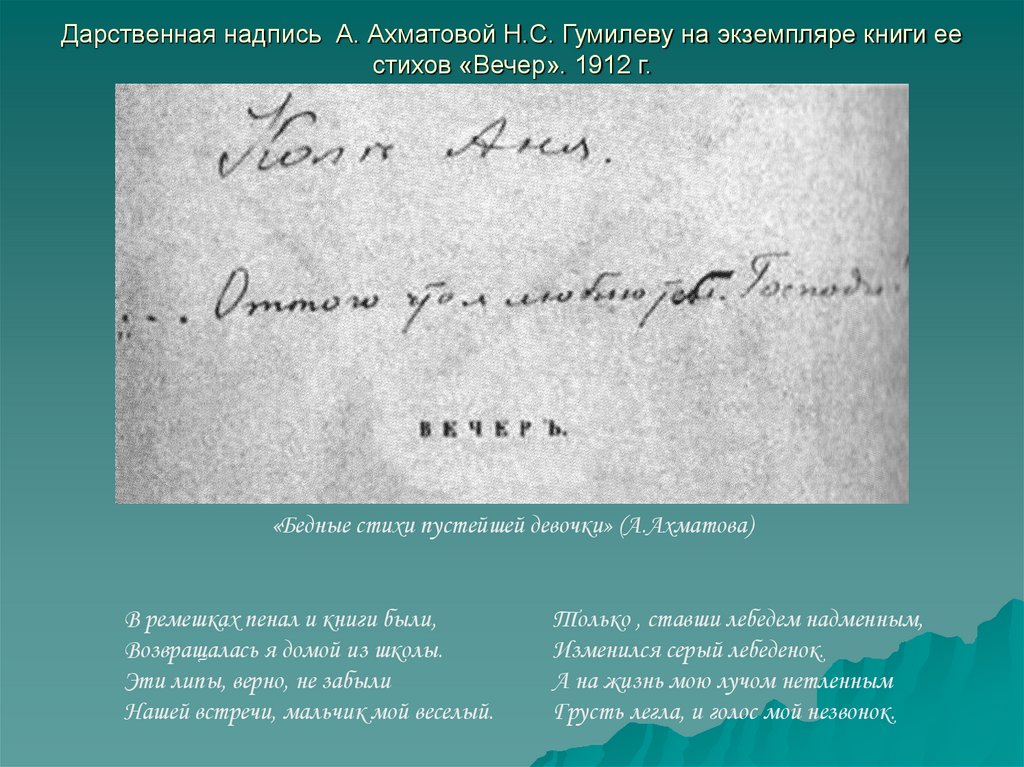 Дарственная надпись А. Ахматовой Н.С. Гумилеву на экземпляре книги ее
стихов «Вечер». 1912 г.
Коля Аня.
... Оттого что я люблю тебя. Господи!"
ВЕЧЕРЪ.
«Бедные стихи пустейшей девочки» (А.Ахматова)
В ремешках пенал и книги были,
Возвращалась я домой из школы.
Эти липы, верно, не забыли
Нашей встречи, мальчик мой веселый.
Только , ставши лебедем надменным,
Изменился серый лебеденок.
А на жизнь мою лучом нетленным
Грусть легла, и голос мой незвонок.